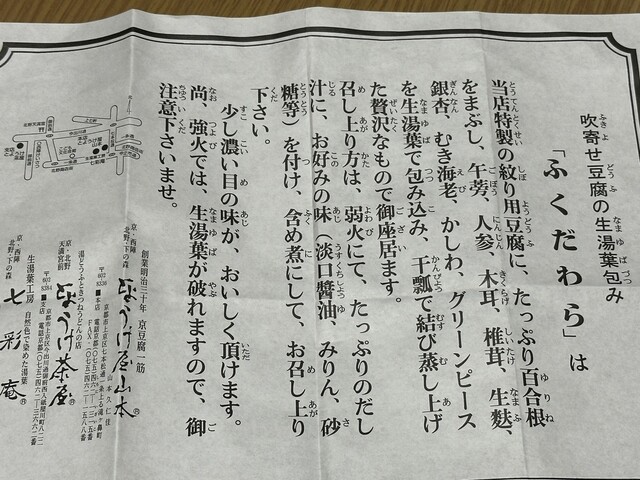 吹寄せ豆腐の生湯葉包み
「ふくだわら」は
当店特製の絞り用豆腐に、たっぷり百合根
をまぶし、午蒡、人参、木耳、椎茸、生麩、
銀杏、むき海老、かしわ、グリーンピース
を生湯葉で包み込み、干瓢で結び蒸し上げ
た贅沢なもので御座居ます。
召し上り方は、弱火にて、たっぷりのだし
汁に、お好みの味（淡口醬油、みりん、砂
糖等）を付け、含め煮にして、お召し上り
下さい。
少し濃い目の味が、おいしく頂けます。
尚、強火では、生湯葉が破れますので、御
注意下さいませ。
創業明治三十年 京豆腐一筋
京・西陣
北野・下の森
とようけ屋山本
山本久仁佳
湯どうふときつねうどんの店
京・北野
天満宮前
とようけ茶屋
生湯葉工房 自然色で染めた湯葉
京・西陣
北野・下の森
七彩庵